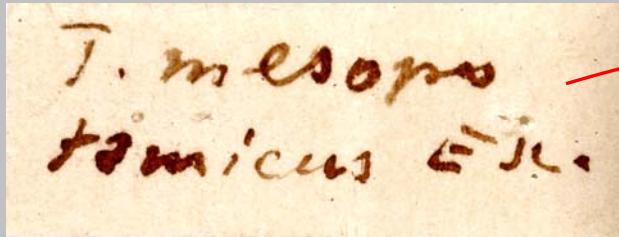 T. mesopo
tamicus Er.